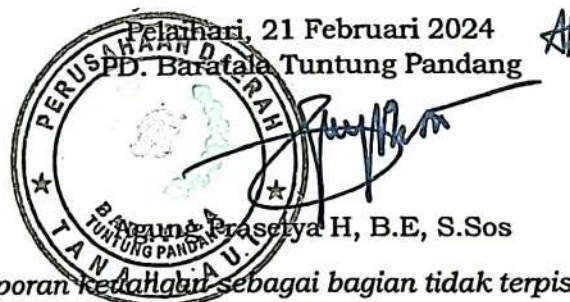 Pelaihari, 21 Februari 2024
PD. Baratala Tuntung Pandang
PERUSAHAAN DAERAH
BARATALA
TUNTUNG PANDANG
TANAH LAUT
Agung Prasetya H, B.E, S.Sos
poran keuangan sebagai bagian tidak terpis